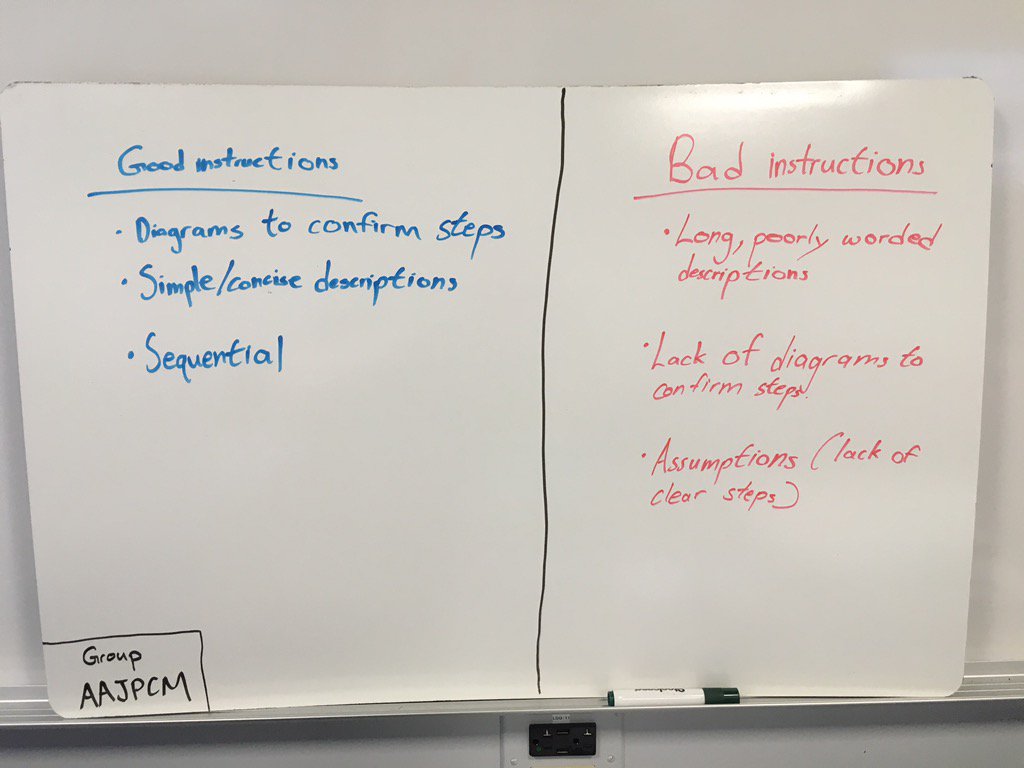 Good instructions
• Diagrams to confirm steps
• Simple/concise descriptions
• Sequential
Bad instructions
• Long, poorly worded
descriptions
• Lack of diagrams to
confirm steps.
• Assumptions (lack of
clear steps)
Group
AAJPCM